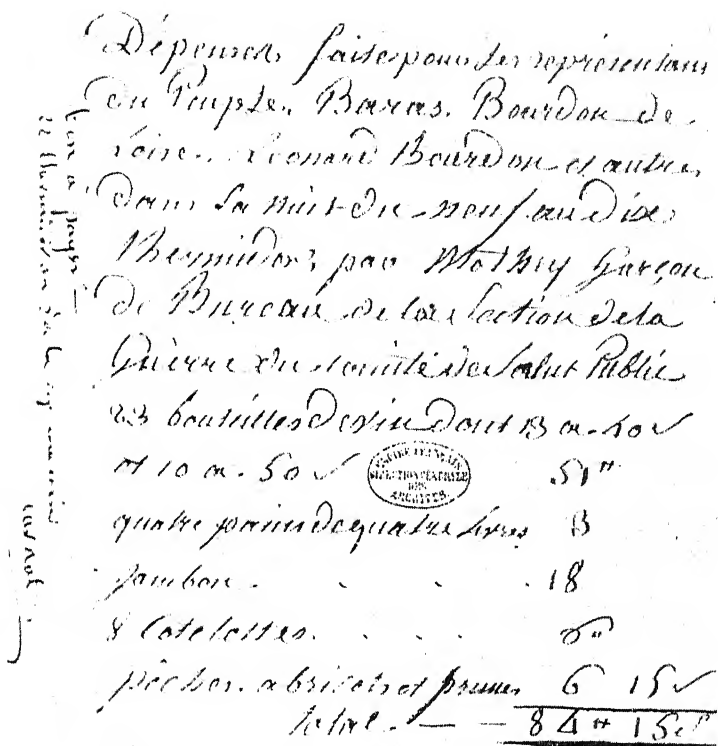 Dépenses faite pour les représentans
du Peuple, Baras, Bourdon de
Loise, Léonard Bourdon et autres
dans la nuit du neuf au dix
Thermidor, par Mathey Garçon
de Bureau de la Section de la
Guerre du Comité de Salut Public
23 bouteilles de vin dont 13 a 40 s
et 10 a 50 s 51 "
quatre pains de quatre livres 3
jambon . . . 18
8 cotelettes . . . 6 "
pêches abricots et prunes 6 15 s
total — — 84 " 15 s
EMPIRE FRANÇAIS
DIRECTION GÉNÉRALE
DES
ARCHIVES
bon a payer
22 thermidor an 2 de la rep
carnot